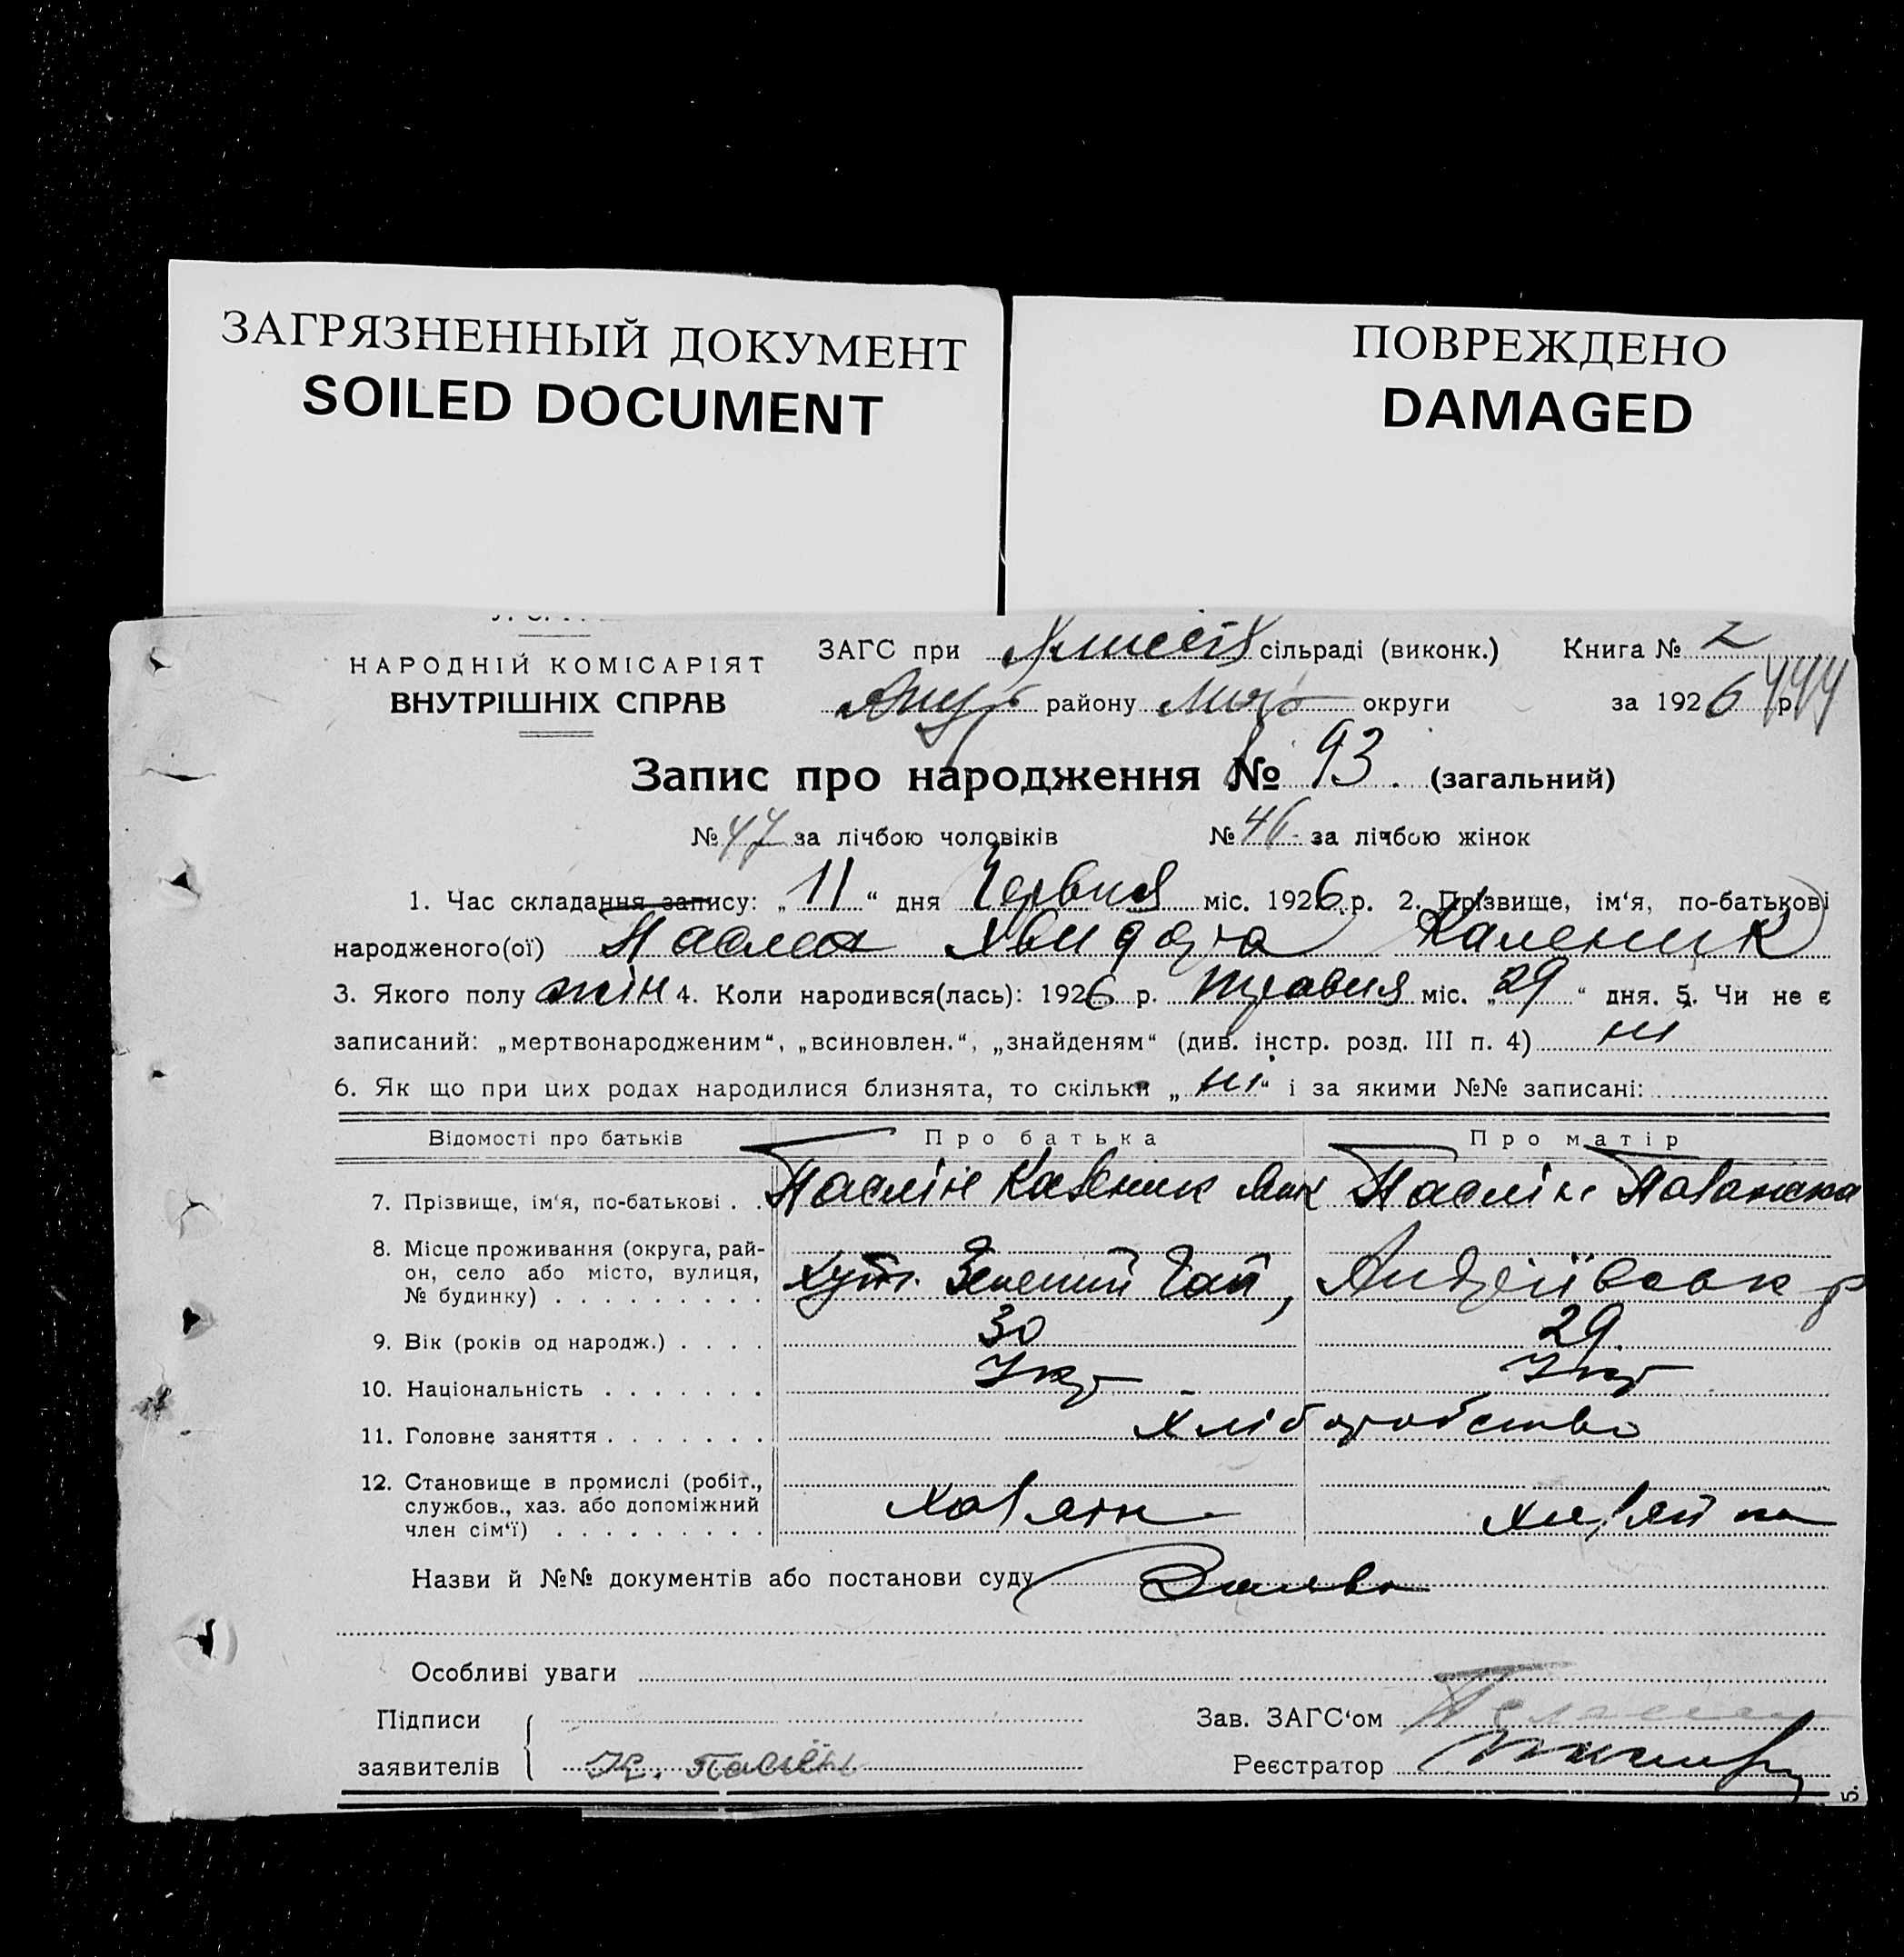 ЗАГРЯЗНЕННЫЙ ДОКУМЕНТ
SOILED DOCUMENT
ПОВРЕЖДЕНО
DAMAGED
НАРОДНІЙ КОМІСАРІЯТ
ВНУТРІШНІХ СПРАВ
ЗАГС при сільраді (виконк.) Книга № 2
району округи за 1926 р. 444
Запис про народження № 93. (загальний)
№ 47 за лічбою чоловіків № 46 за лічбою жінок
1. Час складання запису: „ 11 “ дня Червня міс. 1926 р. 2. Прізвище, ім‘я, по-батькові
народженого(ої) Хвидора Каленик
3. Якого полу жін 4. Коли народився(лась): 1926 р. травня міс. „ 29 “ дня. 5. Чи не є
записаний: „мертвонародженим“, „всиновлен.“, „знайденям“ (див. інстр. розд. III п. 4) ні
6. Як що при цих родах народилися близнята, то скільки „ ні “ і за якими №№ записані:
Відомості про батьків Про батька Про матір
7. Прізвище, ім‘я, по-батькові . . Паслін Каленик Паслін
8. Місце проживання (округа, рай-
он, село або місто, вулиця,
№ будинку) . . . . . . . . . хут. Зелений Гай, Андріївськ р
9. Вік (років од народж.) . . . . 30 29
10. Національність . . . . . . . Укр Укр
11. Головне заняття . . . . . . . хліборобство
12. Становище в промислі (робіт.,
службов., хаз. або допоміжний
член сім‘ї) . . . . . . . . . Хазяїн Хазяйка
Назви й №№ документів або постанови суду Заява
Особливі уваги
Підписи Зав. ЗАГС‘ом
заявителів К. Паслін Реєстратор
5.